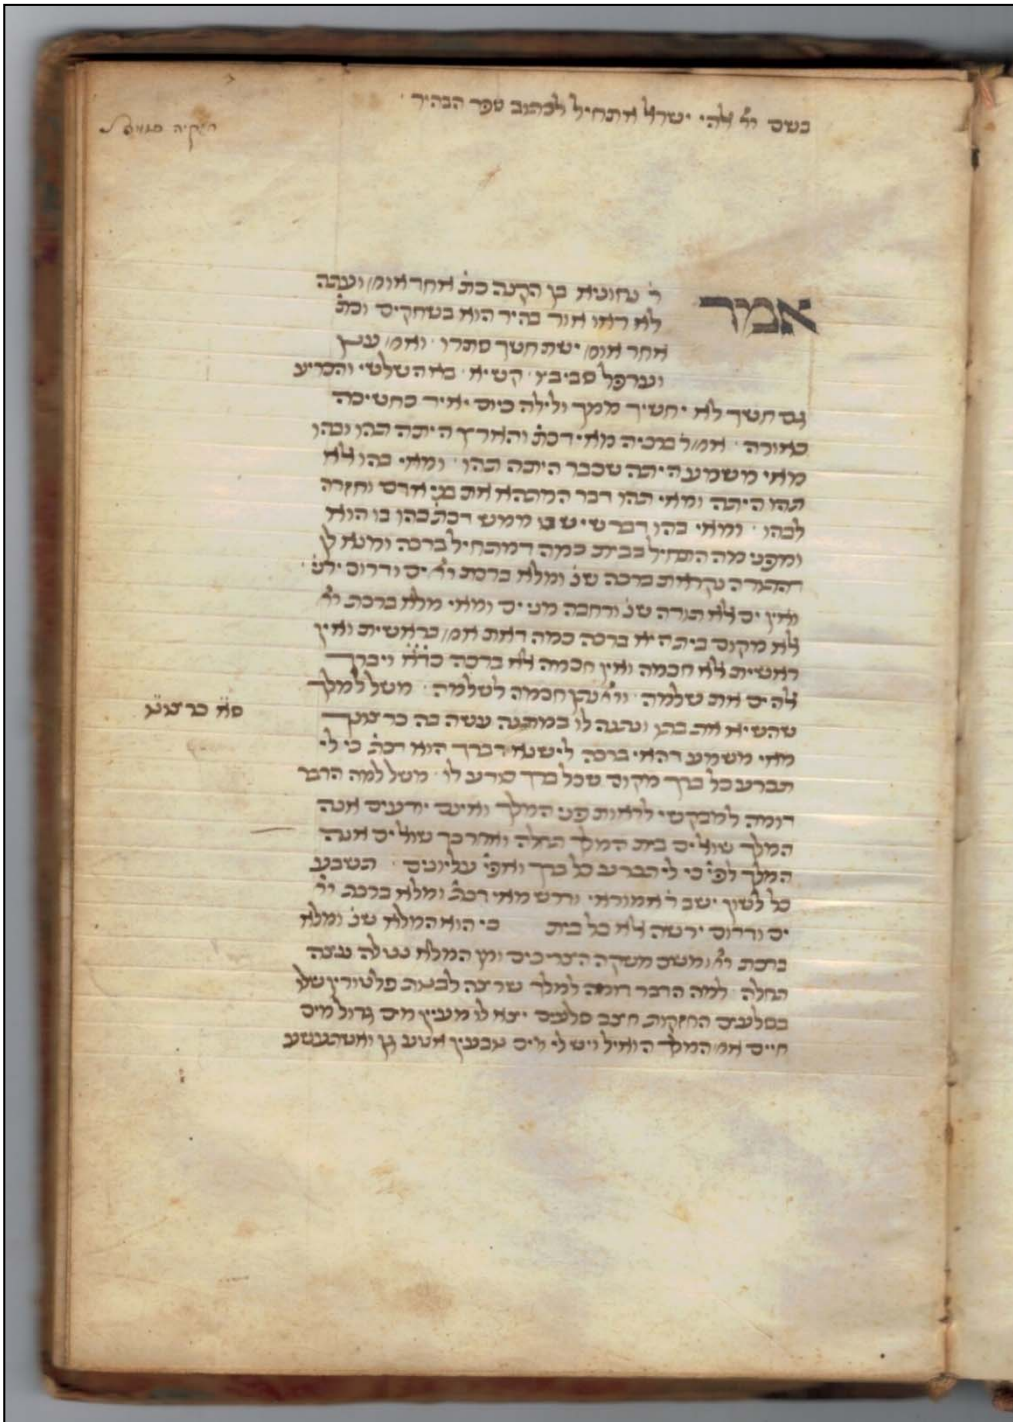 בשם ייי אלהי ישראל אתחיל לכתוב ספר הבהיר
אמר
ר׳ נחוניא בן הקנה כת׳ אחד אומ׳ ועתה
לא ראו אור בהיר הוא בשחקים וכת׳
אחד אומ׳ ישת חשך סתרו ואמ׳ ענן
וערפל סביביו קשיא בא השלשי והכריע
גם חשך לא יחשיך ממך ולילה כיום יאיר כחשיכה
כאורה אמ׳ ר׳ ברכיה מאי דכת׳ והארץ היתה תהו ובהו
מאי משמע היתה שכבר היתה תהו ומאי בהו אלא
תהו היתה ומאי תהו דבר המתהא את בני אדם וחזרה
לבהו ומאי בהו דבר שיש בו ממש דכת׳ בהו בו הוא
ומפני מה התחיל בבית כמה דמתחיל ברכה ומנא לן
דהתורה נקראת ברכה שנ׳ ומלא ברכת ייי ים ודרום ירש׳
ואין ים אלא תורה שנ׳ ורחבה מני ים ומאי מלא ברכת ייי
אלא מקום בית היא ברכה כמה דאת אמ׳ בראשית ואין
ראשית אלא חכמה ואין חכמה אלא ברכה כד״א ויברך
אלהים את שלמה וייי נתן חכמה לשלמה משל למלך
שהשיא את בתו ונתנה לו במתנה עשה בה כרצונך
ס״א כרצונו
מאי משמע דהאי ברכה לישנא דברך הוא דכת׳ כי לי
תכרע כל ברך מקום שכל ברך כורע לו משל למה הדבר
דומה למבקשי לראות פני המלך ואינם יודעים אנה
המלך שואלים בית המלך תחלה ואחר כך שואלים אנה
המלך לפי׳ כי לי תכרע כל ברך ואפי׳ עליונים תשבע
כל לשון ישב ר׳ אמוראי ודרש מאי דכת׳ ומלא ברכת ייי
ים ודרום ירשה אלא כל בית כי הוא המלא שנ׳ ומלא
ברכת ייי ומשם משקה הצריכים ומן המלא נטולה עצה
תחלה למה הדבר דומה למלך שרצה לבנות פלטורין שלו
בסלעים החזקות חצב סלעים יצא לו מעין מים גדול מים
חיים אמ׳ המלך הואיל ויש לי מים נובעין אטע גן ואשתעשע